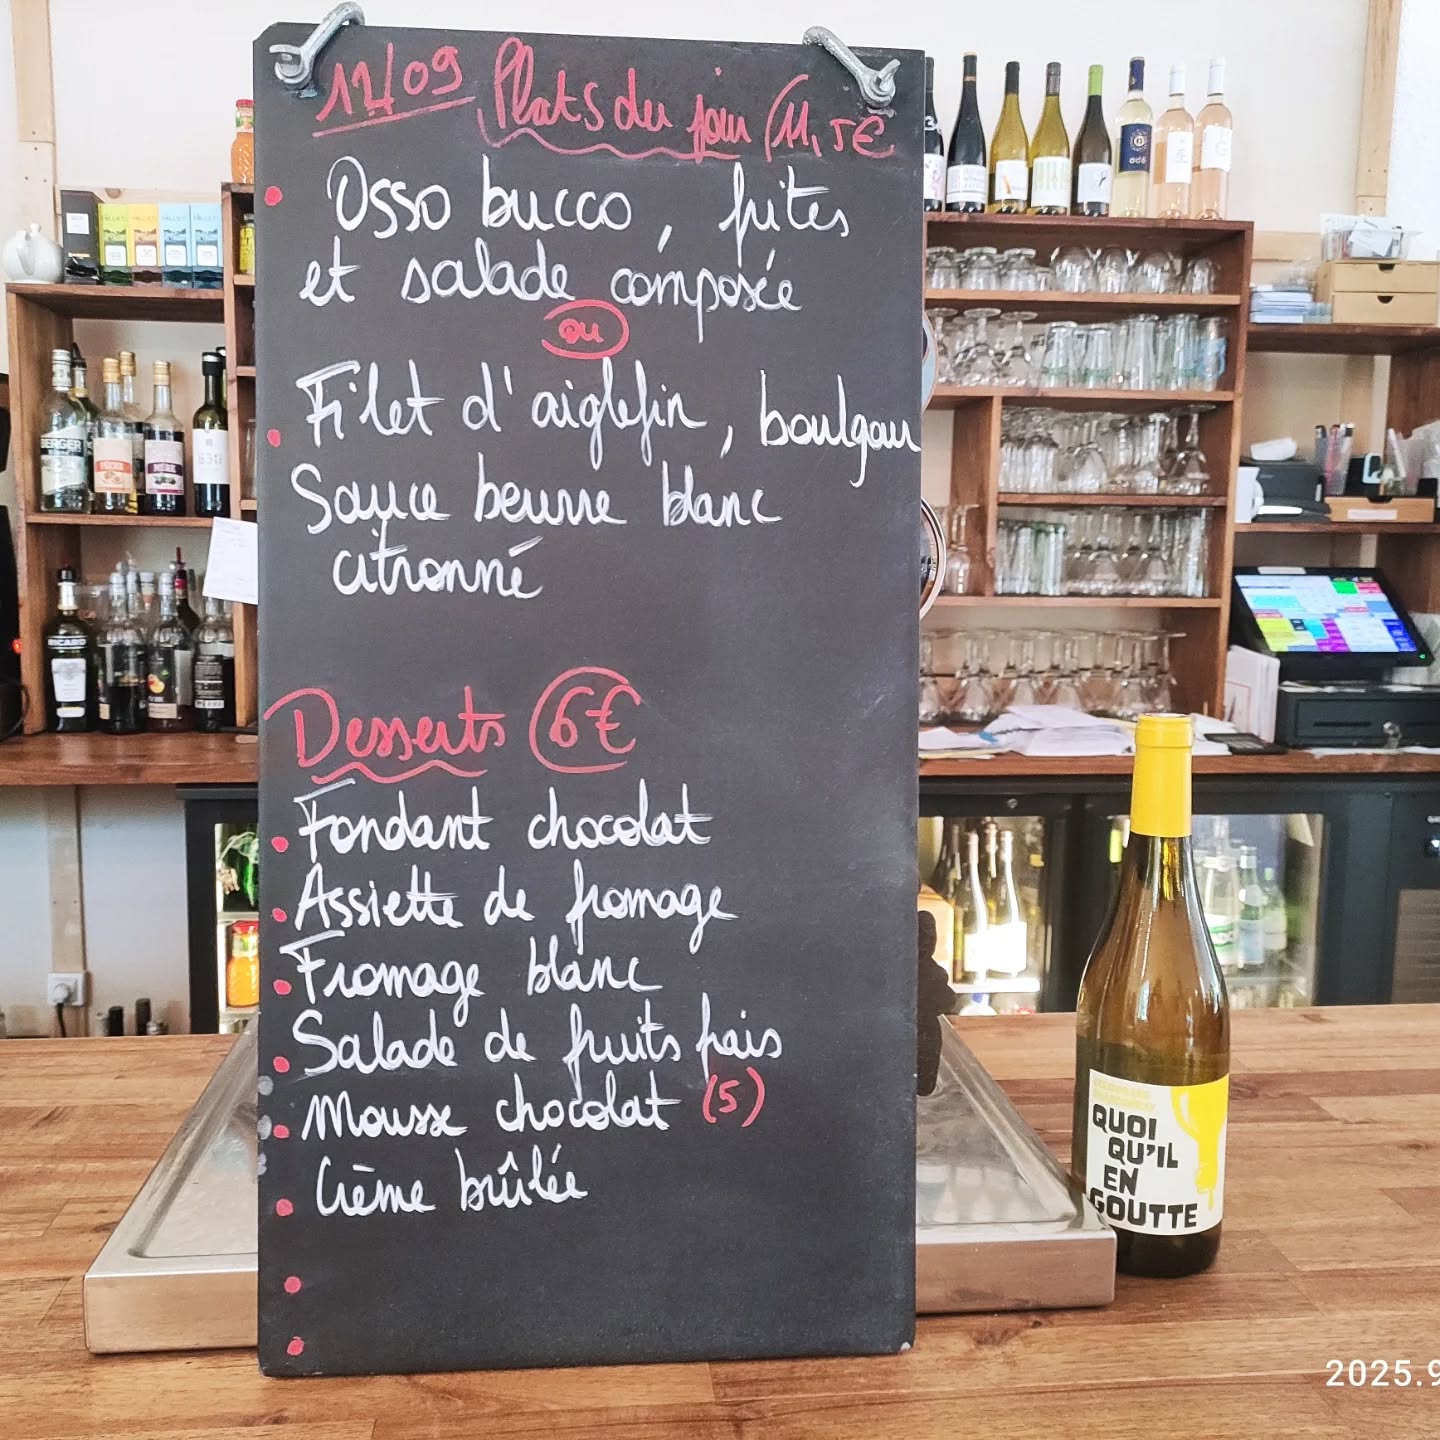 12/09 Plats du jour (11,5€
Osso bucco, frites
et salade composée
ou
Filet d'aiglefin, boulgour
Sauce beurre blanc
citronné
Desserts 6€
Fondant chocolat
Assiette de fromage
Fromage blanc
Salade de fruits frais
Mousse chocolat (5)
Crème brûlée
BERGER
PÊCHE
MÛRE
RICARD
QUOI
QU'IL
EN
GOUTTE
2025.9